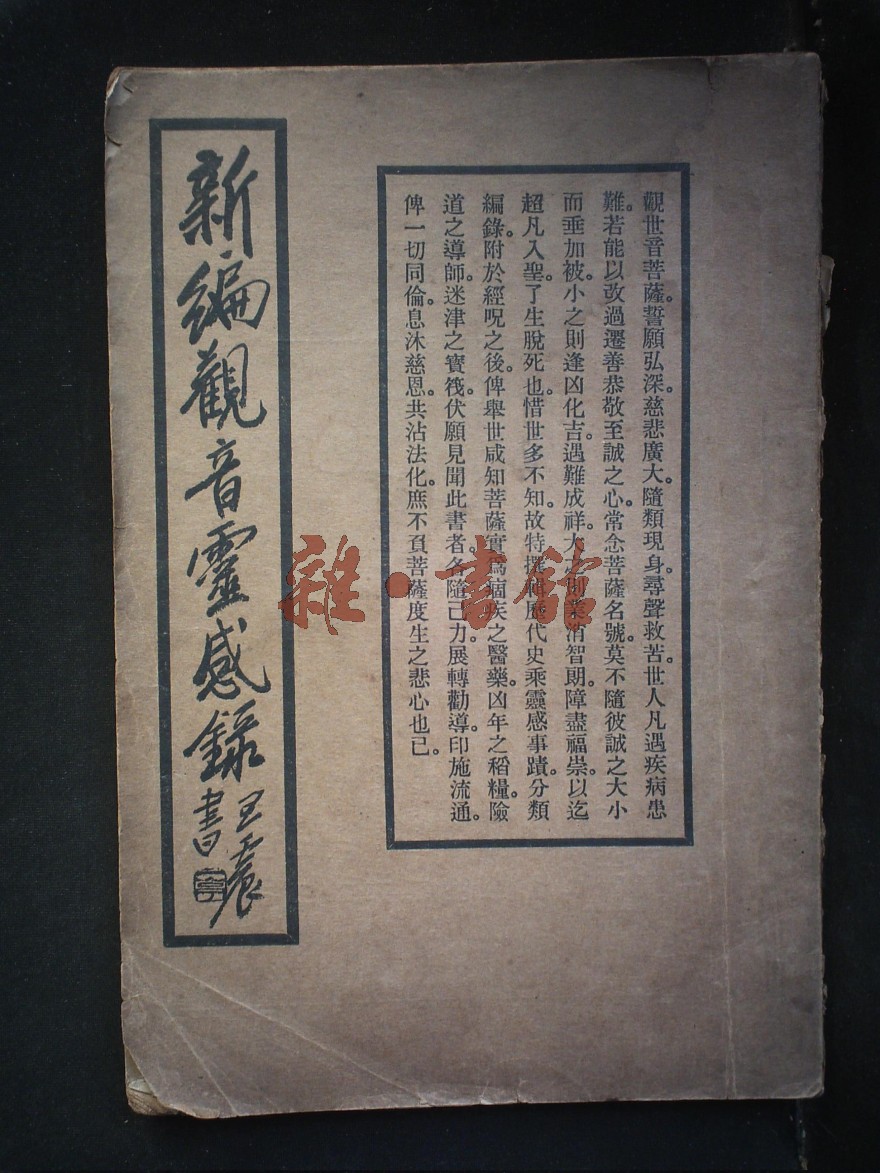 觀世音菩薩。誓願弘深。慈悲廣大。隨類現身。尋聲救苦。世人凡遇疾病患
難。若能以改過遷善恭敬至誠之心。常念菩薩名號。莫不隨彼誠之大小
而垂加被。小之則逢凶化吉。遇難成祥。大之則業消智朗。障盡福崇。以迄
超凡入聖。了生脫死也。惜世多不知。故特撰輯歷代史乘靈感事蹟。分類
編錄。附於經呪之後。俾舉世咸知菩薩實為痼疾之醫藥。凶年之稻糧。險
道之導師。迷津之寶筏。伏願見聞此書者。各隨己力。展轉勸導。印施流通。
俾一切同倫。息沐慈恩。共沾法化。庶不負菩薩度生之悲心也已。
新編觀音靈感錄
王震書
雜·書館